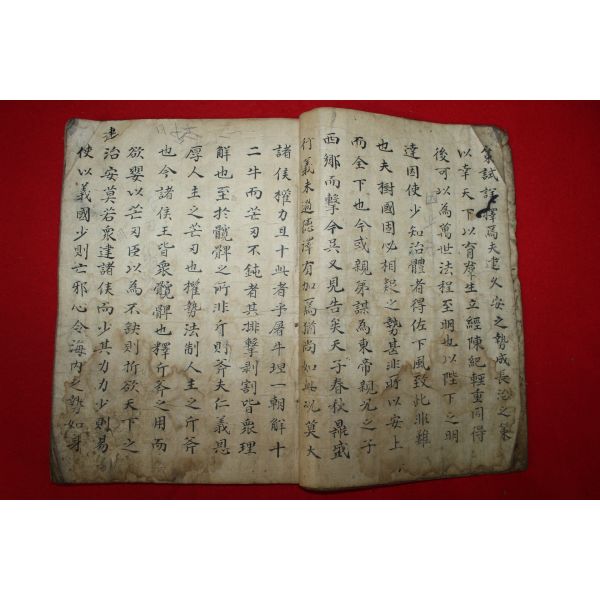 策試詳擇焉夫建久安之勢成長治之策
以幸天下以育群生立經陳紀輕重同得
後可以為萬世法程至明也以陛下之明
達因使少知治體者得佐下風致此非難
也夫樹國固必相疑之勢甚非所以安上
而全下也今或親弟謀為東帝親兄之子
西鄕而擊今吳又見告矣天子春秋鼎盛
行義未過德澤有加焉猶尚如此况莫大
諸侯權力且十此者乎屠牛理一朝解十
二牛而芒刃不鈍者其排擊剥割皆衆理
觧也至於髖髀之所非斤則斧夫仁義恩
厚人主之芒刃也權勢法制人主之斤斧
也今諸侯王皆衆髖髀也釋斤斧之用而
欲嬰以芒刃臣以為不缺則折欲天下之
治安莫若衆建諸侯而少其力力少則易
使以義國少則亡邪心令海内之勢如身